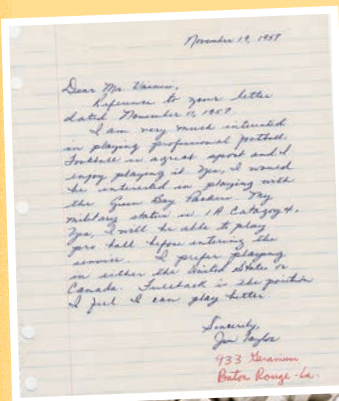 November 19, 1957
Dear Mr. Vainisi,
Reference to your letter
dated November 15, 1957
I am very much interested
in playing professional football.
Football is a great sport and I
enjoy playing it. Yes, I would
be interested in playing with
the Green Bay Packers. My
military status is 1A Catagory.
Yes, I will be able to play
pro ball before entering the
service. I prefer playing
in either the United States or
Canada. Fullback is the position
I feel I can play better.
Sincerely,
Jim Taylor
933 Geranium
Baton Rouge-La.